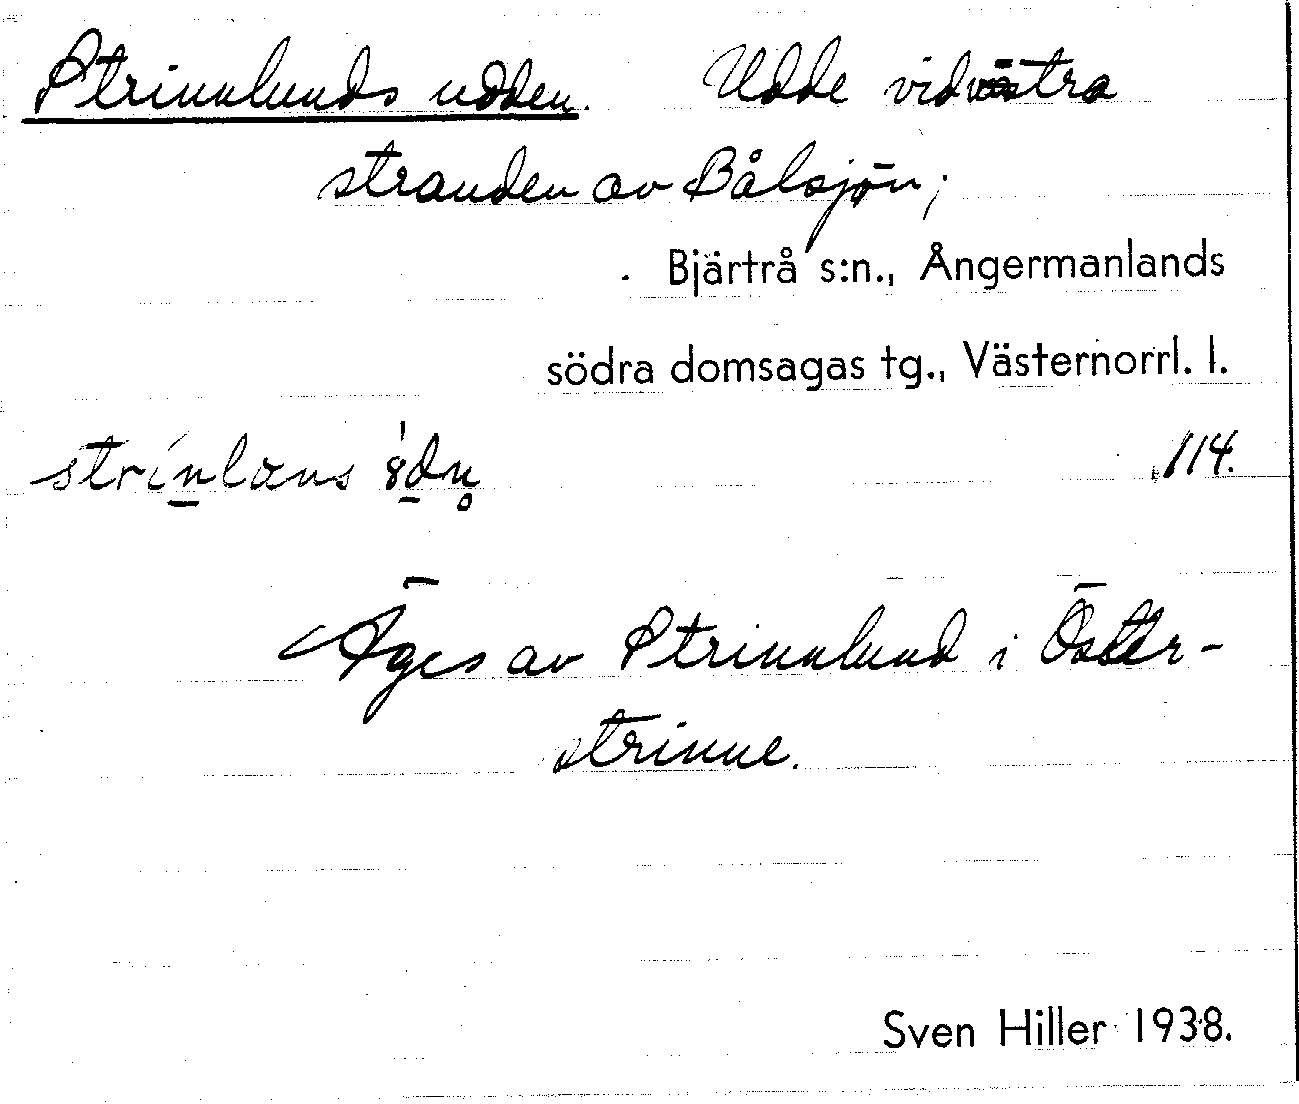 Strinnlunds udden. Udde vid västra
stranden av Bålsjön;
Bjärtrå s:n., Ångermanlands
södra domsagas tg., Västernorrl. l.
114.
Äges av Strinnlund i Öster-
strinne.
Sven Hiller 1938.